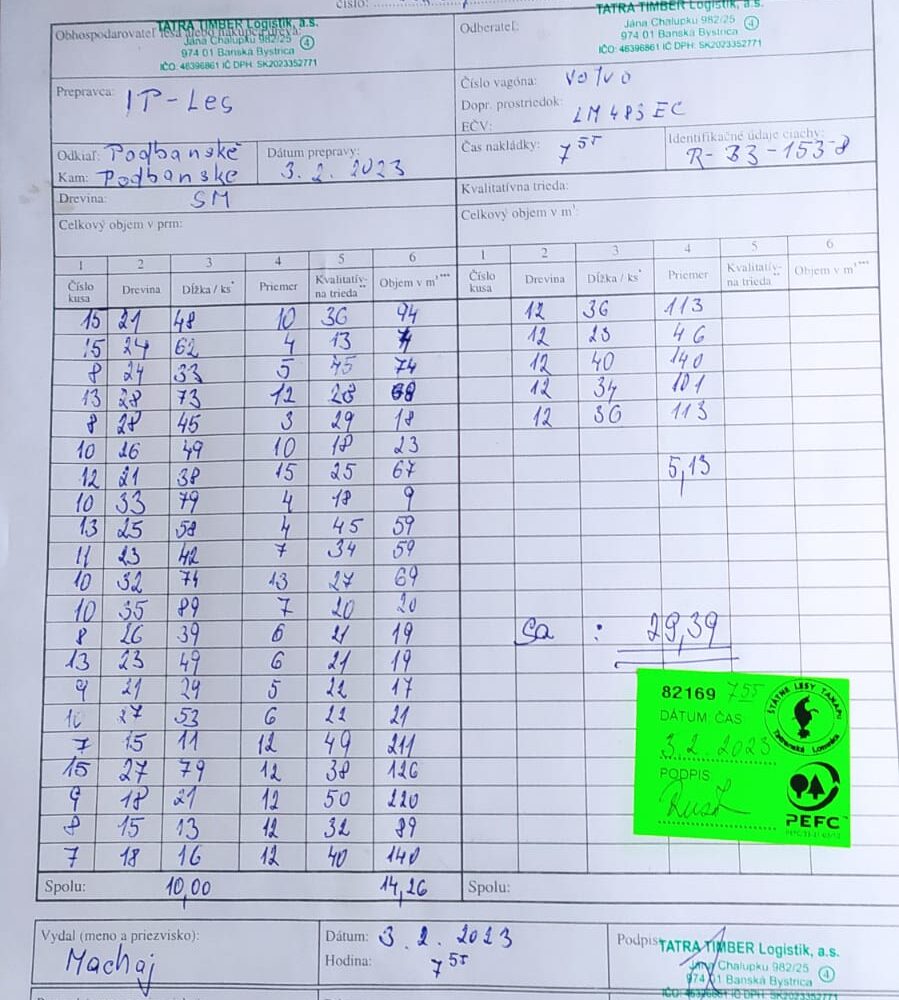 číslo:
TATRA TIMBER Logistik, a.s.
Jána Chalupku 982/25
974 01 Banská Bystrica
IČO: 46396861 IČ DPH: SK2023352771
4
Obhospodarovateľ lesa alebo nákupca dreva:
TATRA TIMBER Logistik, a.s.
Jána Chalupku 982/25
974 01 Banská Bystrica
IČO: 46396861 IČ DPH: SK2023352771
4
Odberateľ:
Prepravca: IP-Les
Číslo vagóna: Volvo
Dopr. prostriedok:
EČV: LM 483 EC
Odkiaľ: Podbanské
Kam: Podbanské
Dátum prepravy: 3. 2. 2023
Čas nakládky: 7 55
Identifikačné údaje ciachy: R-B3-153-8
Drevina: SM
Kvalitatívna trieda:
Celkový objem v prm:
Celkový objem v m³:
1 2 3 4 5 6 1 2 3 4 5 6
Číslo kusa Drevina Dĺžka / ks* Priemer Kvalitatív- na trieda** Objem v m³*** Číslo kusa Drevina Dĺžka / ks* Priemer Kvalitatív- na trieda** Objem v m³***
15 21 48 10 36 94 12 36 113
15 24 62 4 13 12 23 46
8 24 33 5 45 74 12 40 140
13 28 73 12 28 68 12 34 101
8 28 45 3 29 18 12 36 113
10 26 49 10 18 23
12 21 38 15 25 67 5,13
10 33 79 4 18 9
13 25 58 4 45 59
11 23 42 7 34 59
10 32 74 13 27 69
10 35 89 7 20 20
8 26 39 6 21 19 Sa : 29,39
13 23 49 6 21 19
9 21 29 5 22 17
10 27 53 6 22 21
7 15 11 12 49 211
15 27 79 12 38 126
9 18 21 12 50 220
8 15 13 12 32 89
7 18 16 12 40 140
82169 7 55
DÁTUM ČAS
3. 2. 2023
PODPIS
ŠTÁTNE LESY TANAPU
Tatranská Lomnica
PEFC
Spolu: 10,00 14,26 Spolu:
Vydal (meno a priezvisko): Machaj
Dátum: 3. 2. 2023
Hodina: 7 55
Podpis:
TATRA TIMBER Logistik, a.s.
Jána Chalupku 982/25
974 01 Banská Bystrica
IČO: 46396861 IČ DPH: SK2023352771
4